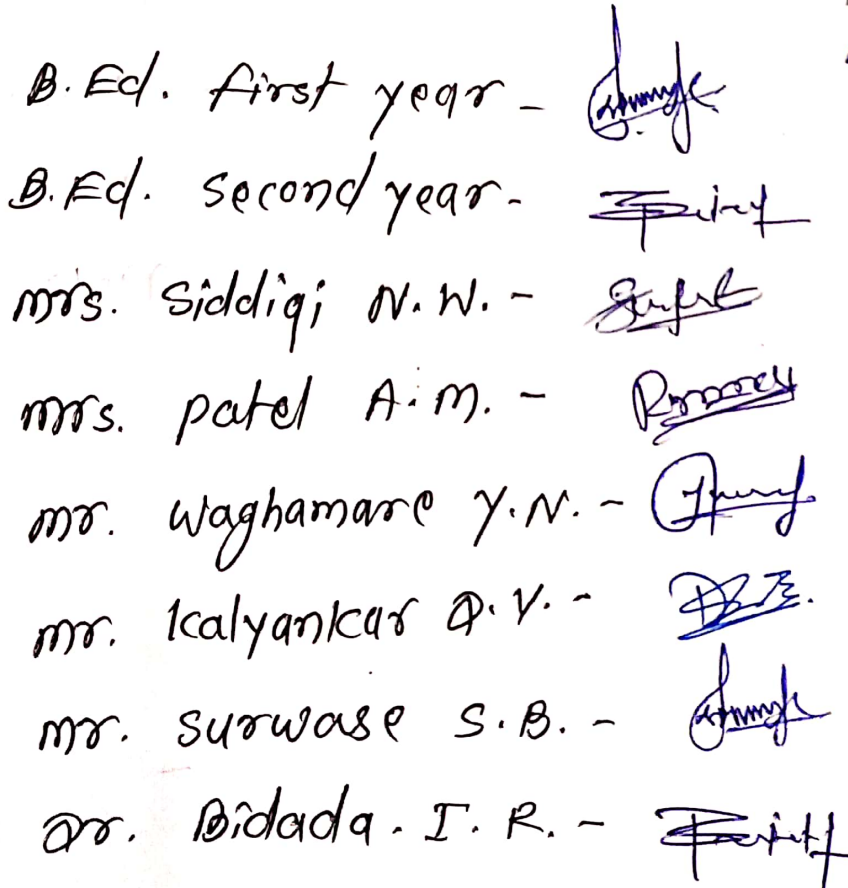 B.Ed. first year -
B.Ed. second year -
mrs. Siddiqi N.W. -
mrs. patel A.M. -
mr. Waghamare Y.N. -
mr. Kalyankar D.V. -
mr. surwase S.B. -
Dr. Bidada. I. R. -